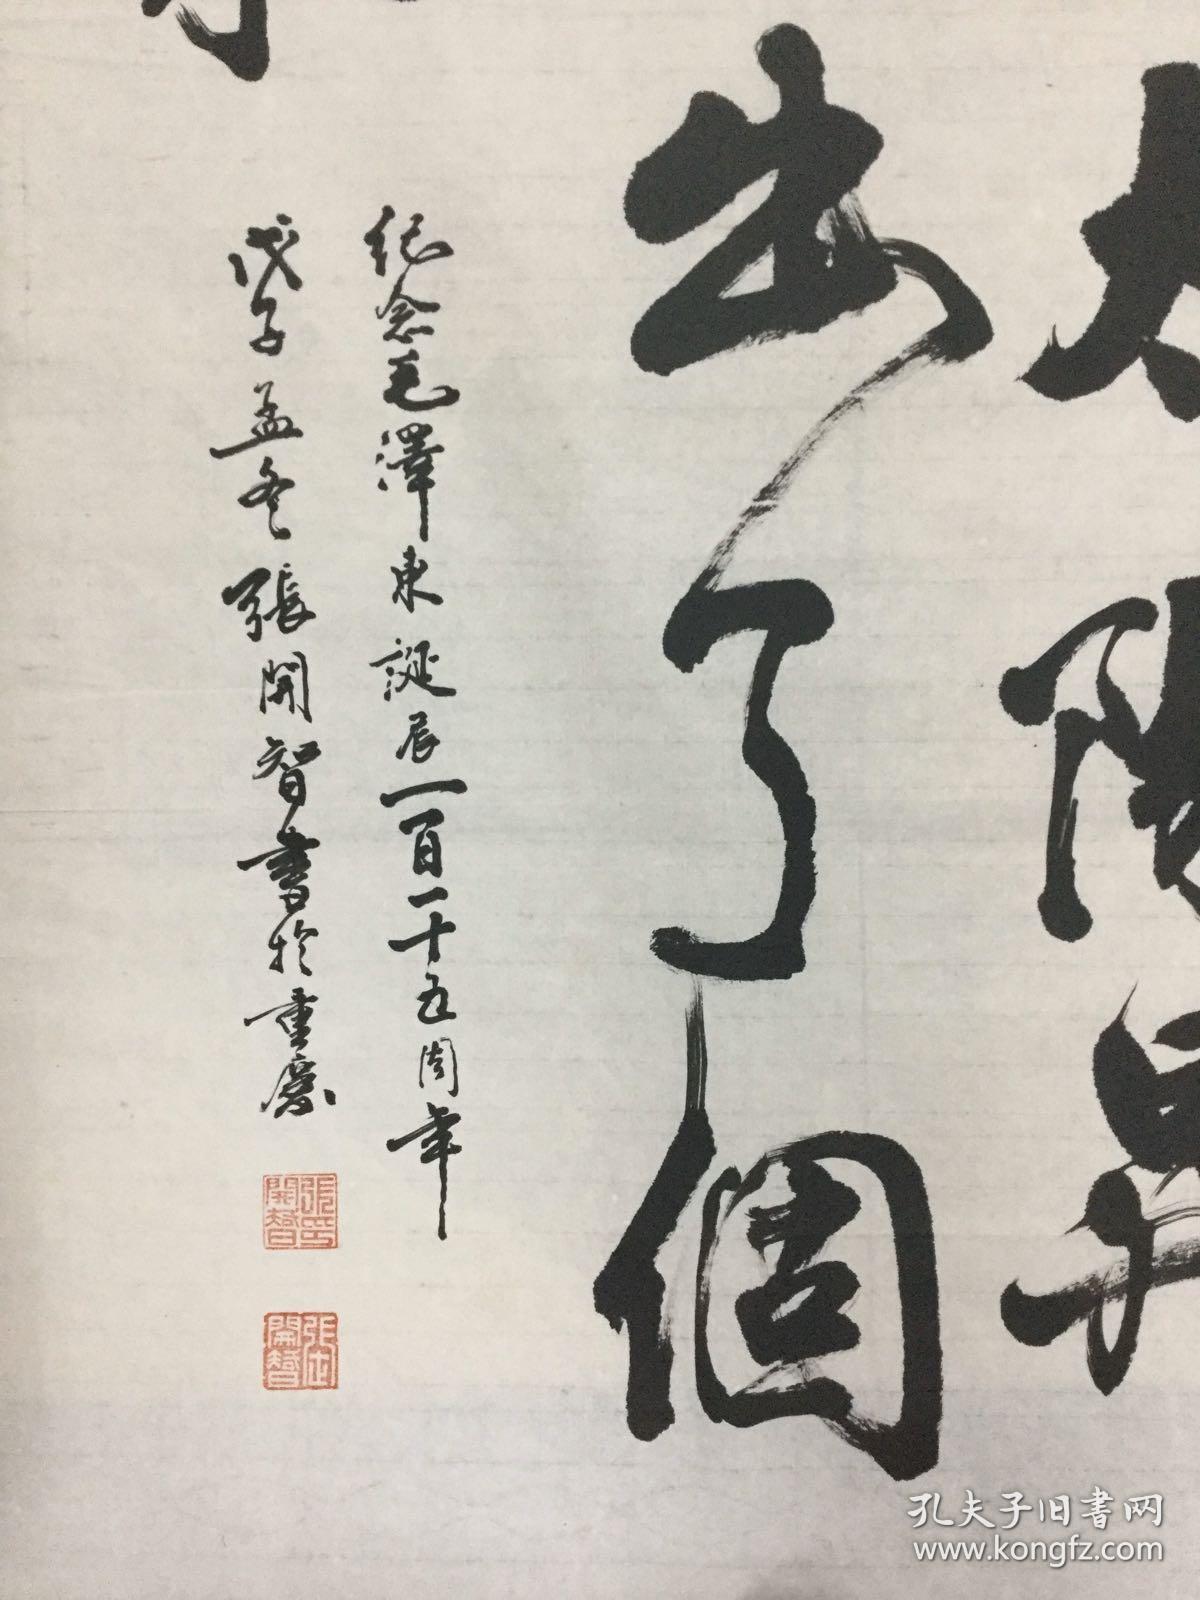 太陽昇
出了個
紀念毛澤東誕辰一百一十五周年
戊子孟冬張開智書於重慶
張印開智
孔夫子旧书网
www.kongfz.com